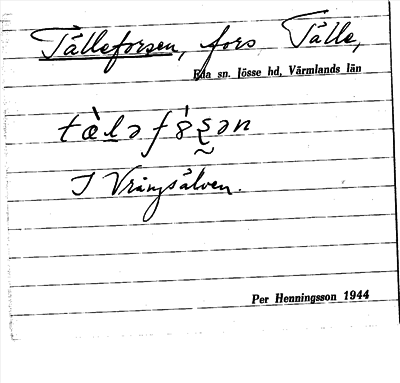 Tälleforsen, fors Tälle,
Eda sn. Jösse hd, Värmlands län
I Vrångsälven.
Per Henningsson 1944